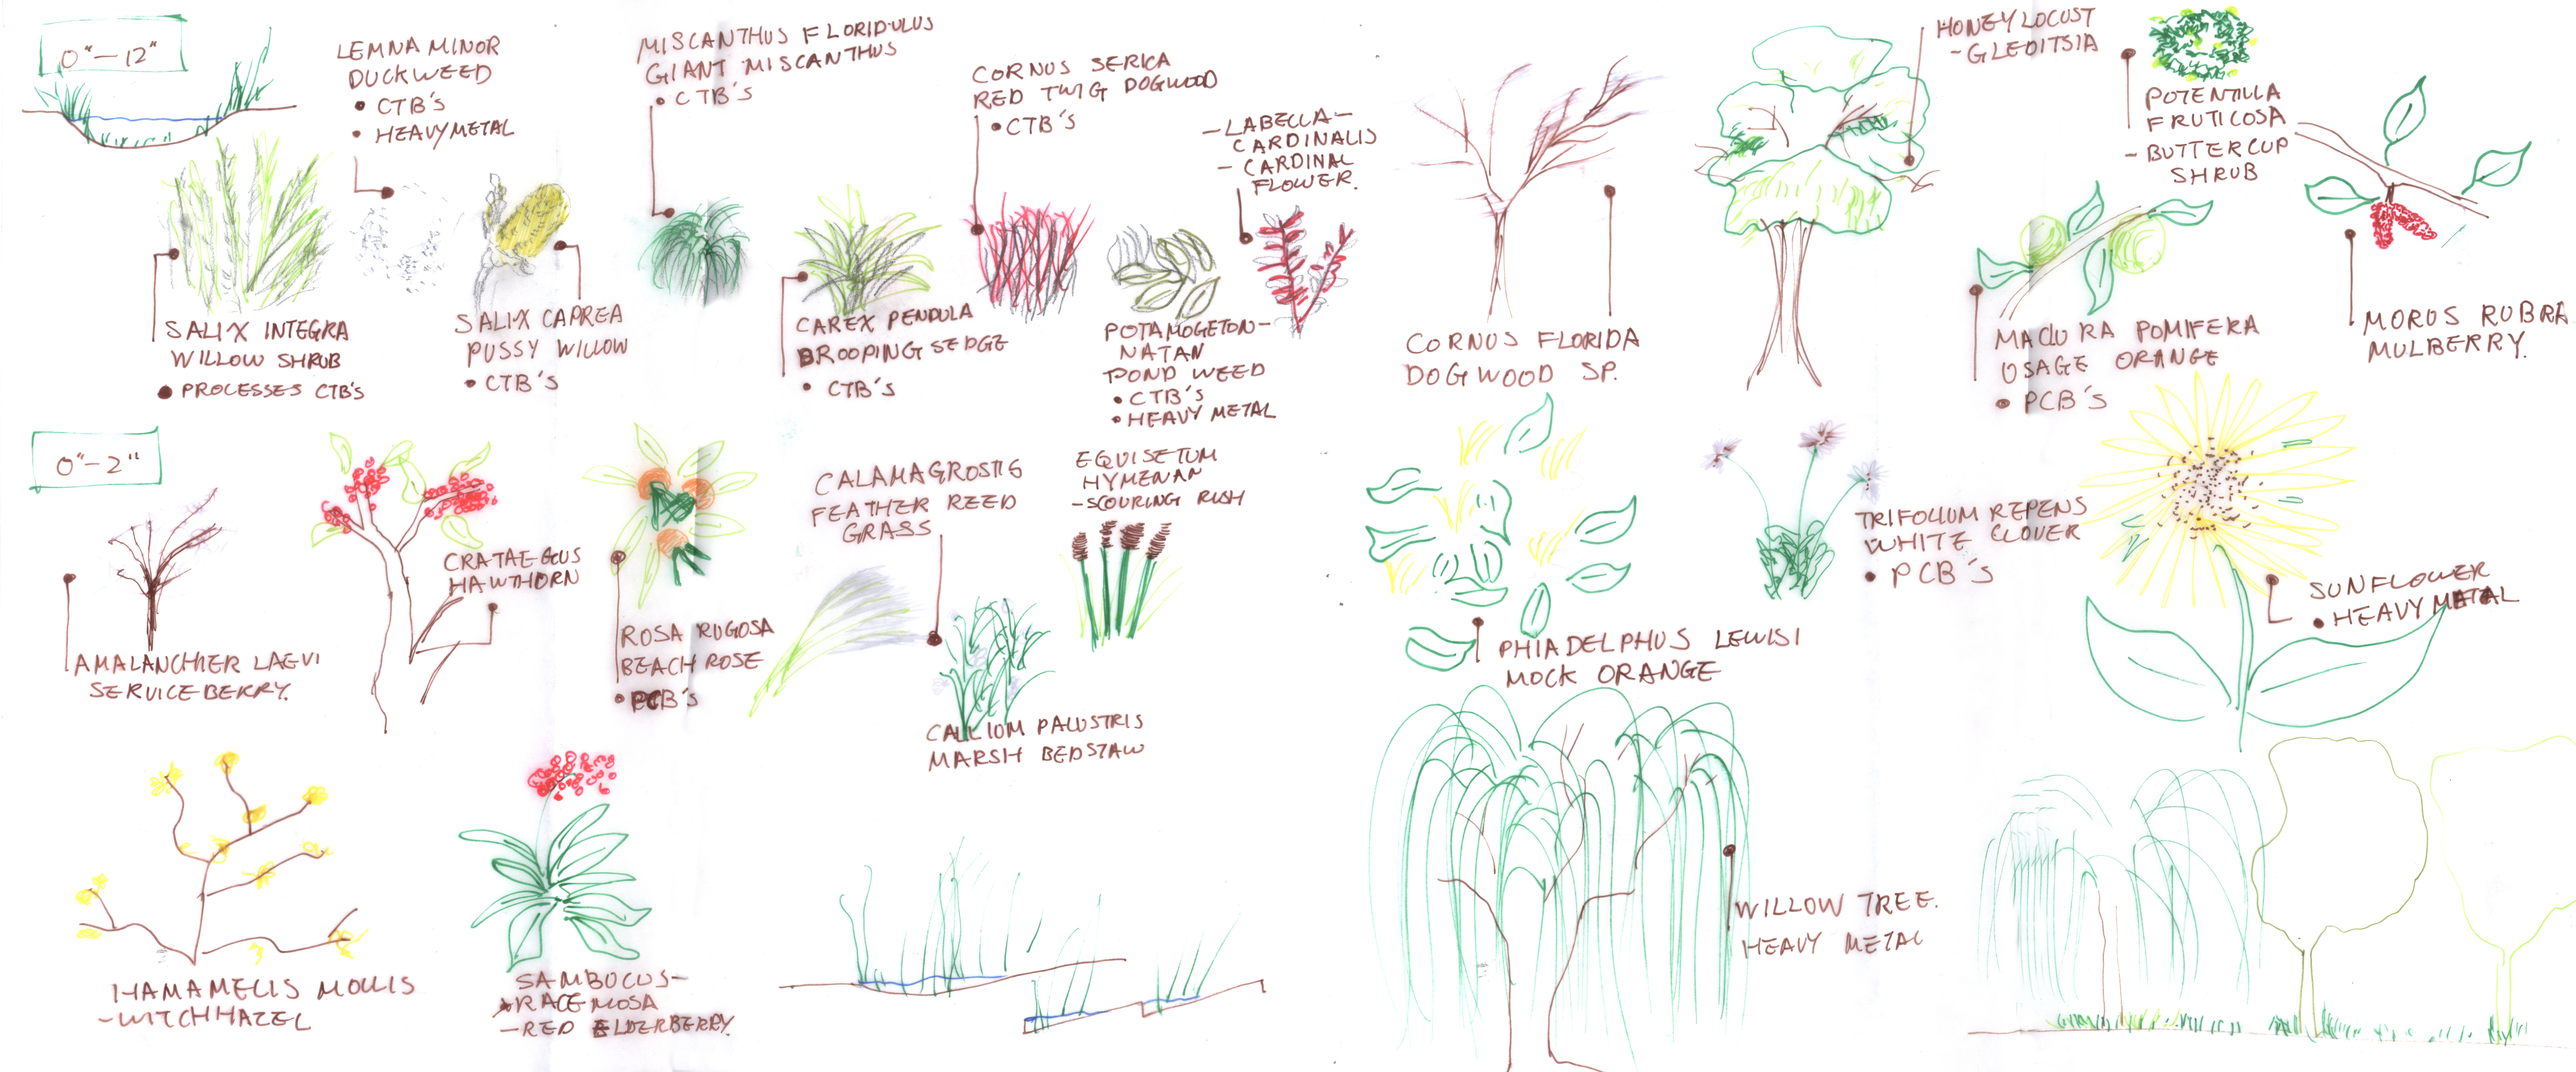 0"-12"
LEMNA MINOR
DUCKWEED
• CTB's
• HEAVY METAL
MISCANTHUS FLORIDULUS
GIANT MISCANTHUS
• CTB's
CORNUS SERICA
RED TWIG DOGWOOD
• CTB's
-LABELLA-
CARDINALIS
- CARDINAL
FLOWER.
HONEY LOCUST
- GLEDITSIA
POTENTILLA
FRUTICOSA
- BUTTERCUP
SHRUB
SALIX INTEGRA
WILLOW SHRUB
• PROCESSES CTB's
SALIX CAPREA
PUSSY WILLOW
• CTB's
CAREX PENDULA
DROOPING SEDGE
• CTB's
POTAMOGETON-
NATAN
POND WEED
• CTB's
• HEAVY METAL
CORNUS FLORIDA
DOGWOOD SP.
MACLURA POMIFERA
OSAGE ORANGE
• PCB's
MORUS RUBRA
MULBERRY.
0"-2"
AMALANCHIER LAEVI
SERVICEBERRY.
CRATAEGUS
HAWTHORN
ROSA RUGOSA
BEACH ROSE
• PCB's
CALAMAGROSTIS
FEATHER REED
GRASS
EQUISETUM
HYMENAN
-SCOURING RUSH
CALLIUM PALUSTRIS
MARSH BEDSTAW
PHIADELPHUS LEWISI
MOCK ORANGE
TRIFOLIUM REPENS
WHITE CLOVER
• PCB's
SUNFLOWER
• HEAVY METAL
HAMAMELIS MOLLIS
-WITCHHAZEL
SAMBOCUS-
RACEMOSA
-RED ELDERBERRY.
WILLOW TREE.
HEAVY METAL